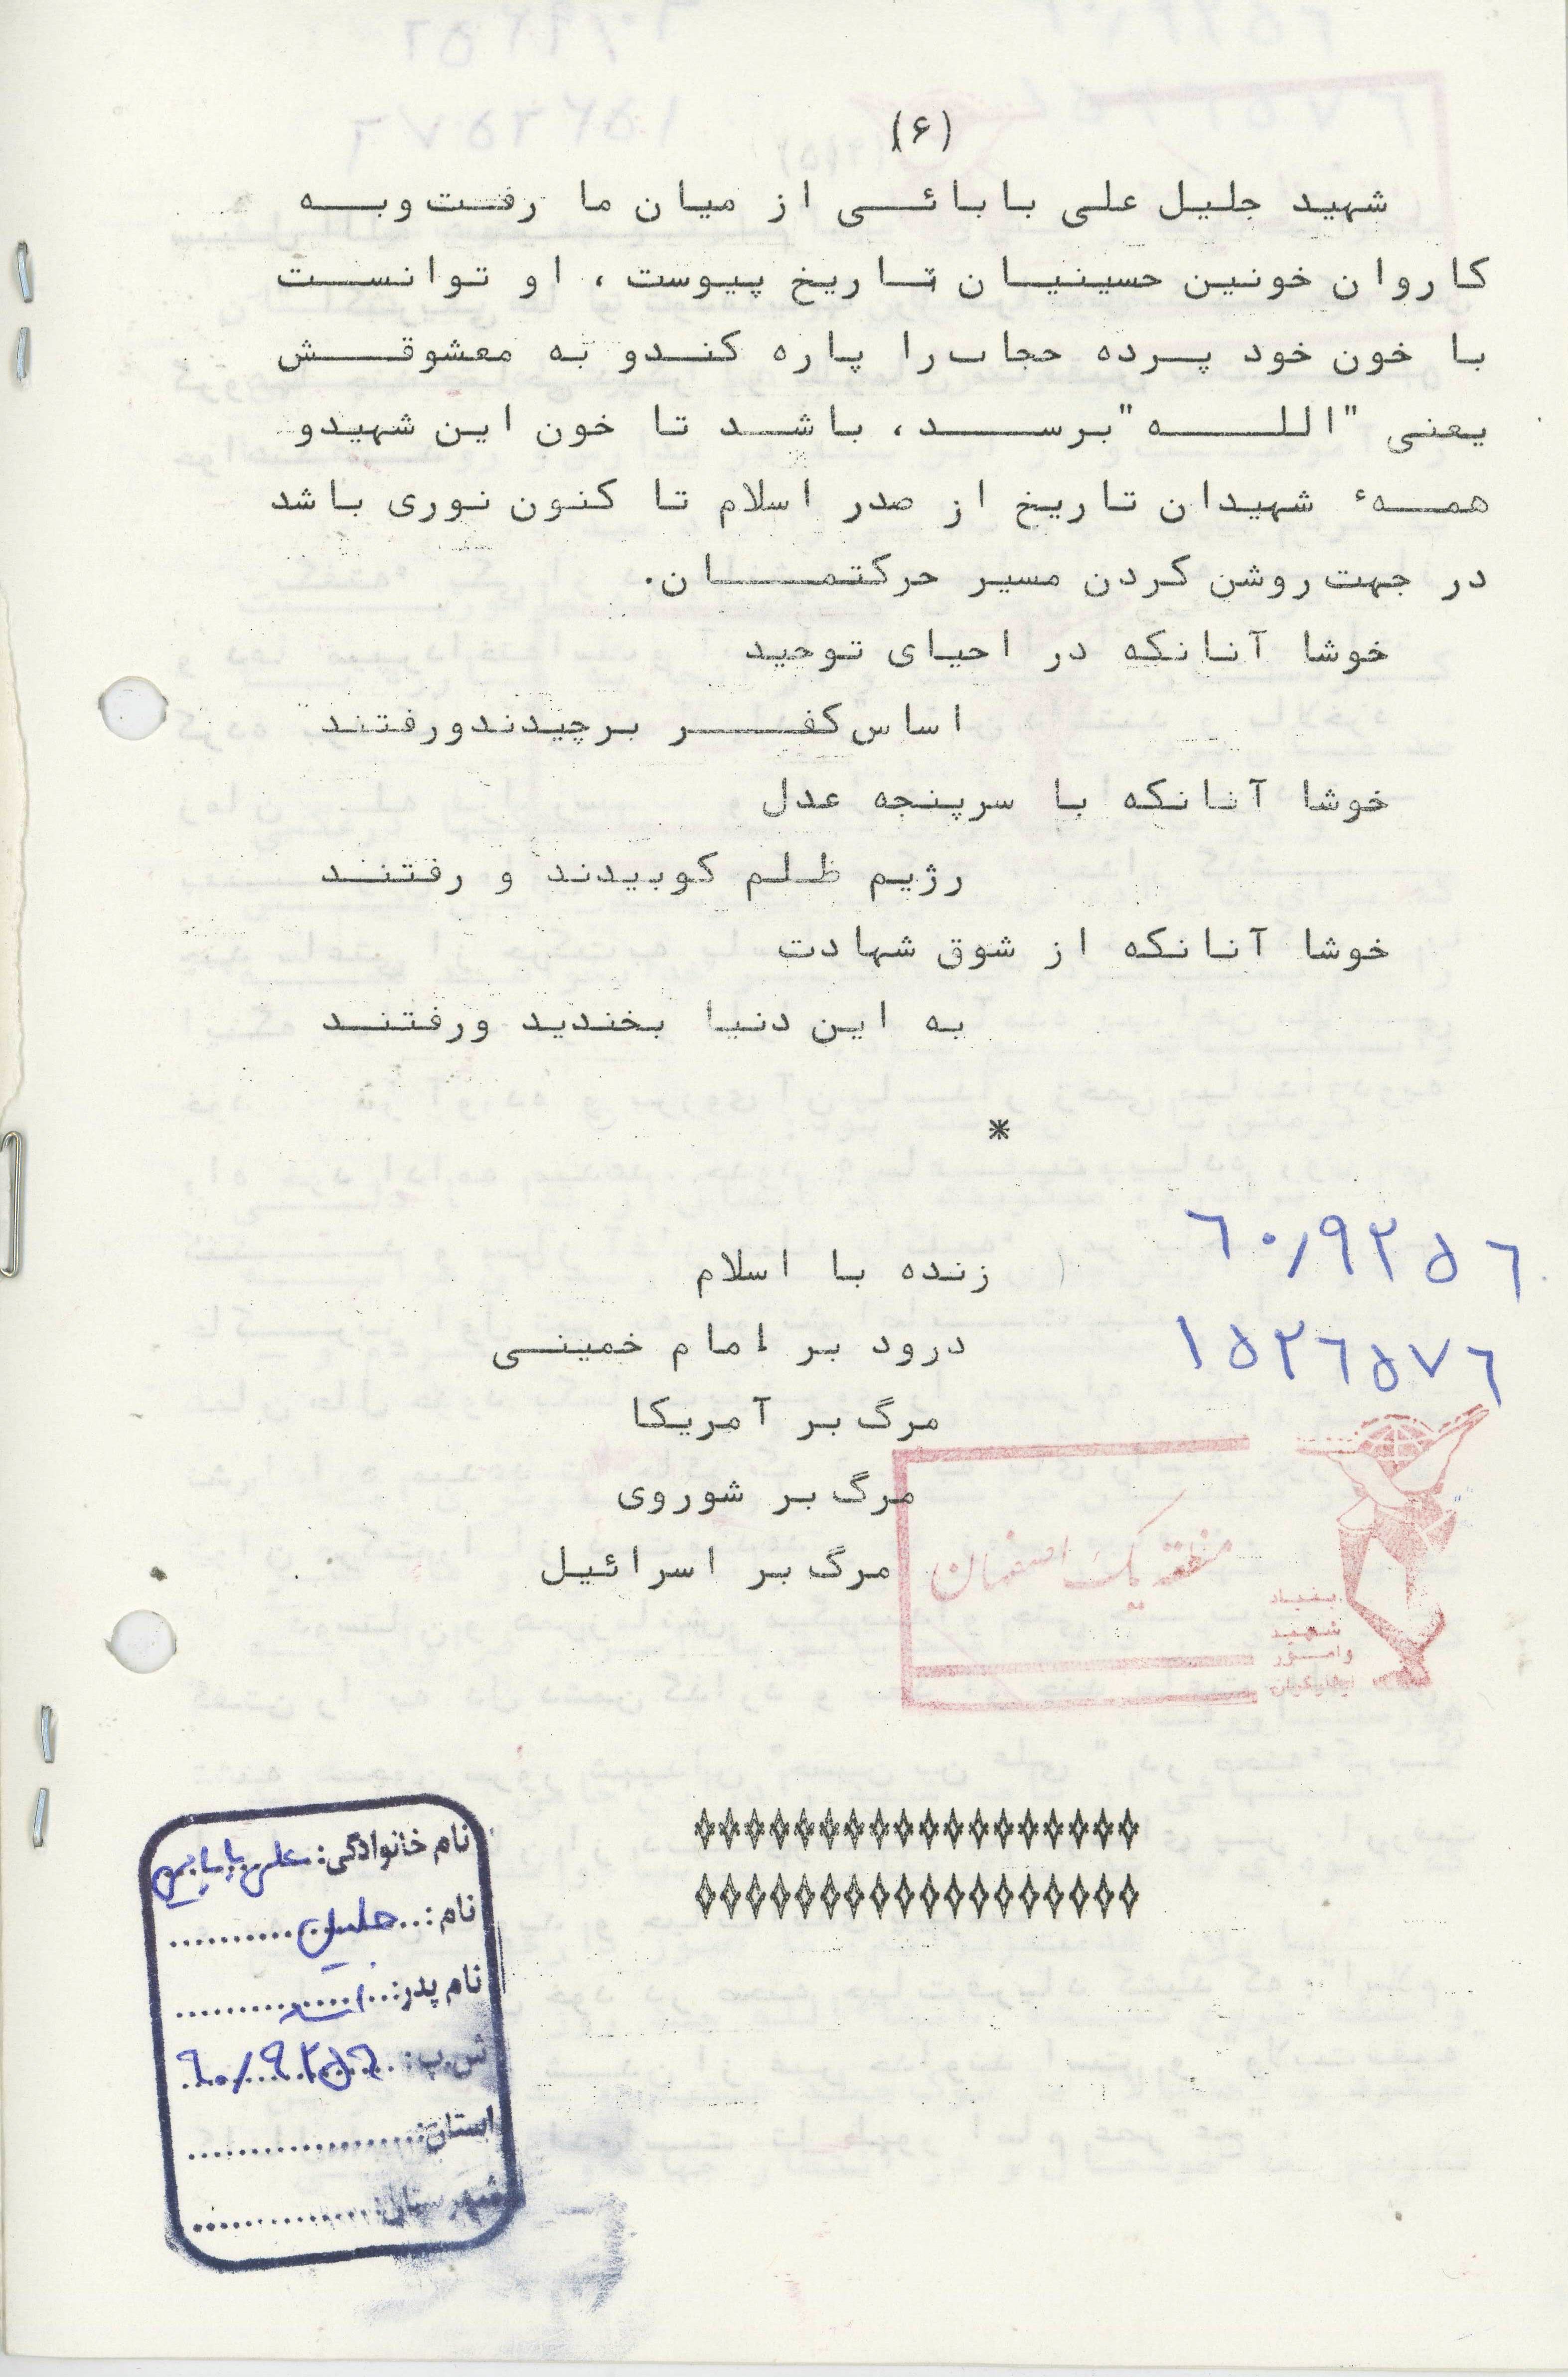 (۶)
شهید جلیل علی بابائی از میان ما رفت وبه
کاروان خونین حسینیان تاریخ پیوست ، او توانست
با خون خود پرده حجاب را پاره کندو به معشوقش
یعنی "الله" برسد، باشد تا خون این شهیدو
همهٔ شهیدان تاریخ از صدر اسلام تا کنون نوری باشد
در جهت روشن کردن مسیر حرکتمان.
خوشا آنانکه در احیای توحید
اساس کفر برچیدندورفتند
خوشا آنانکه با سرپنجه عدل
رژیم ظلم کوبیدند و رفتند
خوشا آنانکه از شوق شهادت
به این دنیا بخندید ورفتند
*
٦٠/٩٢٥٦
زنده با اسلام
١٥٢٦٥٧٦
درود بر امام خمینی
مرگ بر آمریکا
مرگ بر شوروی
مرگ بر اسرائیل
منطقه یک اصفهان
بنیاد
شهید
وامور
ایثارگران
نام خانوادگی: علی بابایی
نام: جلیل
نام پدر:
ش.پ: ٦٠/٩٢٥٦
استان:
شهرستان: